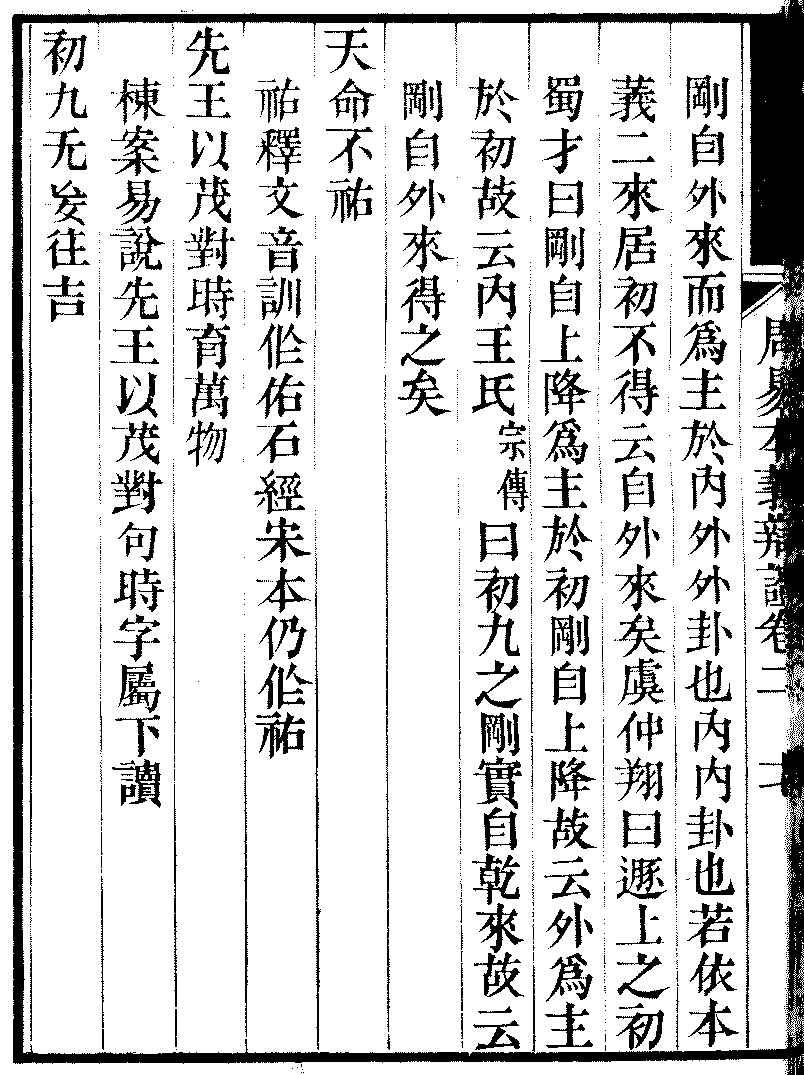 周易本義辯證卷二
剛自外來而爲主於内外外卦也内内卦也若依本
義二來居初不得云自外來矣虞仲翔曰遯上之初
蜀才曰剛自上降爲主於初剛自上降故云外爲主
於初故云内王氏宗傳曰初九之剛實自乾來故云
剛自外來得之矣
天命不祐
祐釋文音訓作佑石經宋本仍作祐
先王以茂對時育萬物
棟案易說先王以茂對句時字屬下讀
初九无妄往吉